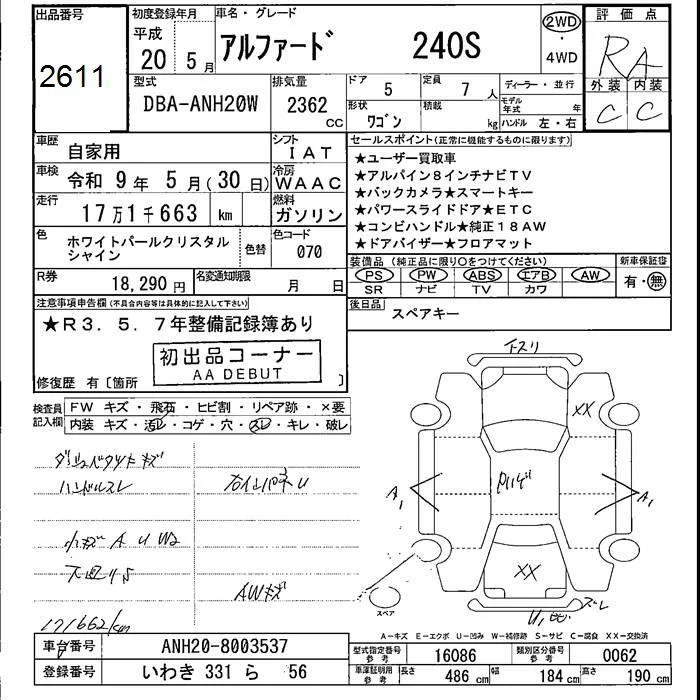 出品番号 初度登録年月 車名・グレード 2WD 評価点
2611
平成 20 5月 アルファード 240S ・ 4WD RA
型式 排気量 ドア 5 定員 7人 ディーラー・並行 外装 内装
DBA-ANH20W 2362 CC 形状 ワゴン 積載 kg モデル年式 年 ハンドル 左・右 C C
車歴 自家用 シフト IAT セールスポイント(正常に機能するものに限ります)
車検 令和 9年 5月(30日) 冷房 WAAC ★ユーザー買取車
走行 17万1千663 km 燃料 ガソリン ★アルパイン8インチナビTV
★バックカメラ★スマートキー
★パワースライドドア★ETC
★コンビハンドル★純正18AW
★ドアバイザー★フロアマット
色 ホワイトパールクリスタルシャイン 色替 色コード 070
装備品(純正品に限り○をつけてください) 新車保証書
PS PW ABS エアB AW 有・無
SR ナビ TV カワ
R券 18,290円 名変通知期限 月 日
後日品 スペアキー
注意事項申告欄(不具合内容等は具体的に記入して下さい)
★R3.5.7年整備記録簿あり
初出品コーナー
AA DEBUT
修復歴 有〔箇所 〕
検査員記入欄 FW キズ・飛石・ヒビ割・リペア跡・×要
内装 キズ・汚レ・コゲ・穴・スレ・キレ・破レ
ハンドルスレ
小キズ A U W2
AWキズ
171662/km
XX
A1
A1
XX
スペア
A-キズ E-エクボ U-凹み W-補修跡 S-サビ C-腐食 XX-交換済
車台番号 ANH20-8003537 型式指定番号 参考 16086 類別区分番号 参考 0062
登録番号 いわき 331 ら 56 車庫証明用 参考 長さ 486 cm 幅 184 cm 高さ 190 cm